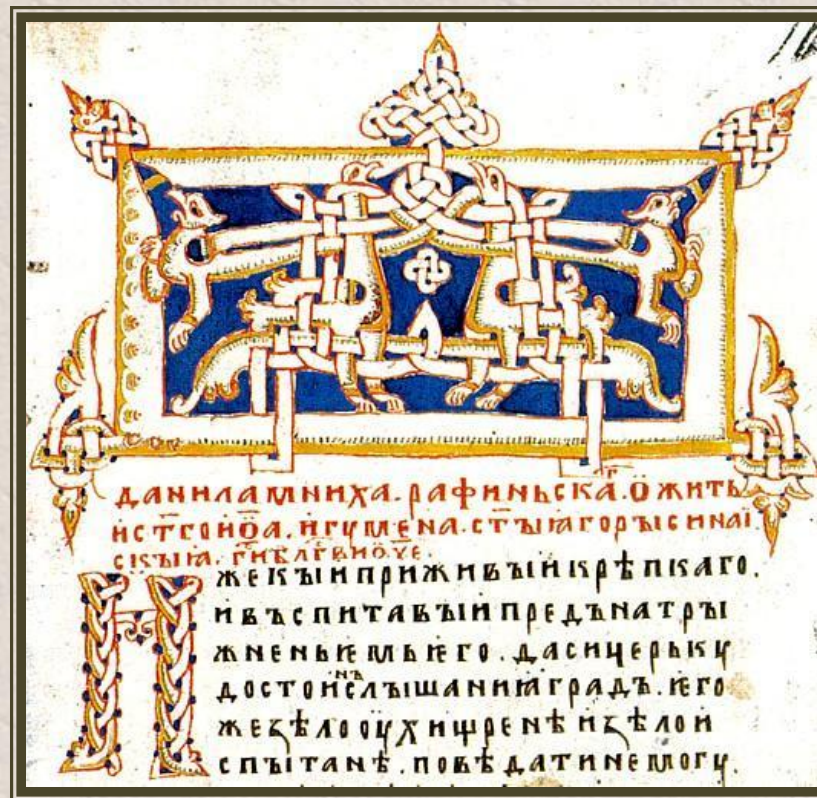 данꙇламниха.рафиньскаⷢ҇.ѻжить
ист҃гоиѻ҃а.игумена.ст҃ъіꙗгоръісинаі
скъіꙗ.г҃иблг҃виѻ҃че.
Пжекъіиприживъіикрѣпкаго.
ивъспитавъіипредънатръі
жненьѥмьѥго.дасицерьку
достоинъслъішаниꙗградъ.ѥго
жеѕѣлооухищренѣиѕѣлои
спъітанѣ.повѣдатинемогу.